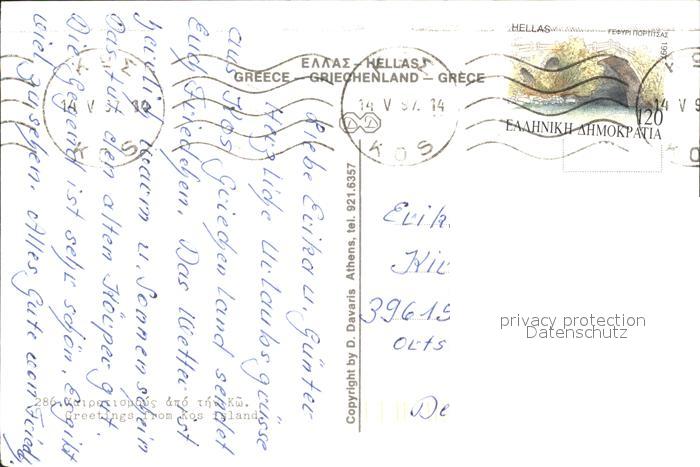 ΕΛΛΑΣ - HELLAS
GREECE - GRIECHENLAND - GRÈCE
HELLAS
ΓΕΦΥΡΙ ΠΟΡΤΙΤΣΑΣ
1997
120
ΕΛΛΗΝΙΚΗ ΔΗΜΟΚΡΑΤΙΑ
14 V 97
ΚΩΣ
KOS
14 V 97. 14
KOS
14 V 9
Liebe Erika u. Günter
Herzliche Urlaubsgrüsse
aus Kos Griechenland sendet
Euch Friedchen. Das Wetter ist
herrlich warm u. Sonnenschein
Das tut den alten Körper gut.
Die Gegend ist sehr schön, es gibt
viel zu sehen. Alles Gute von Fried.
Copyright by D. Davaris Athens, tel. 921.6357
Erik
Kir
39615
Orts
De
privacy protection
Datenschutz
286 Χαιρετισμούς ἀπό τήν Κῶ.
Greetings from Kos island.